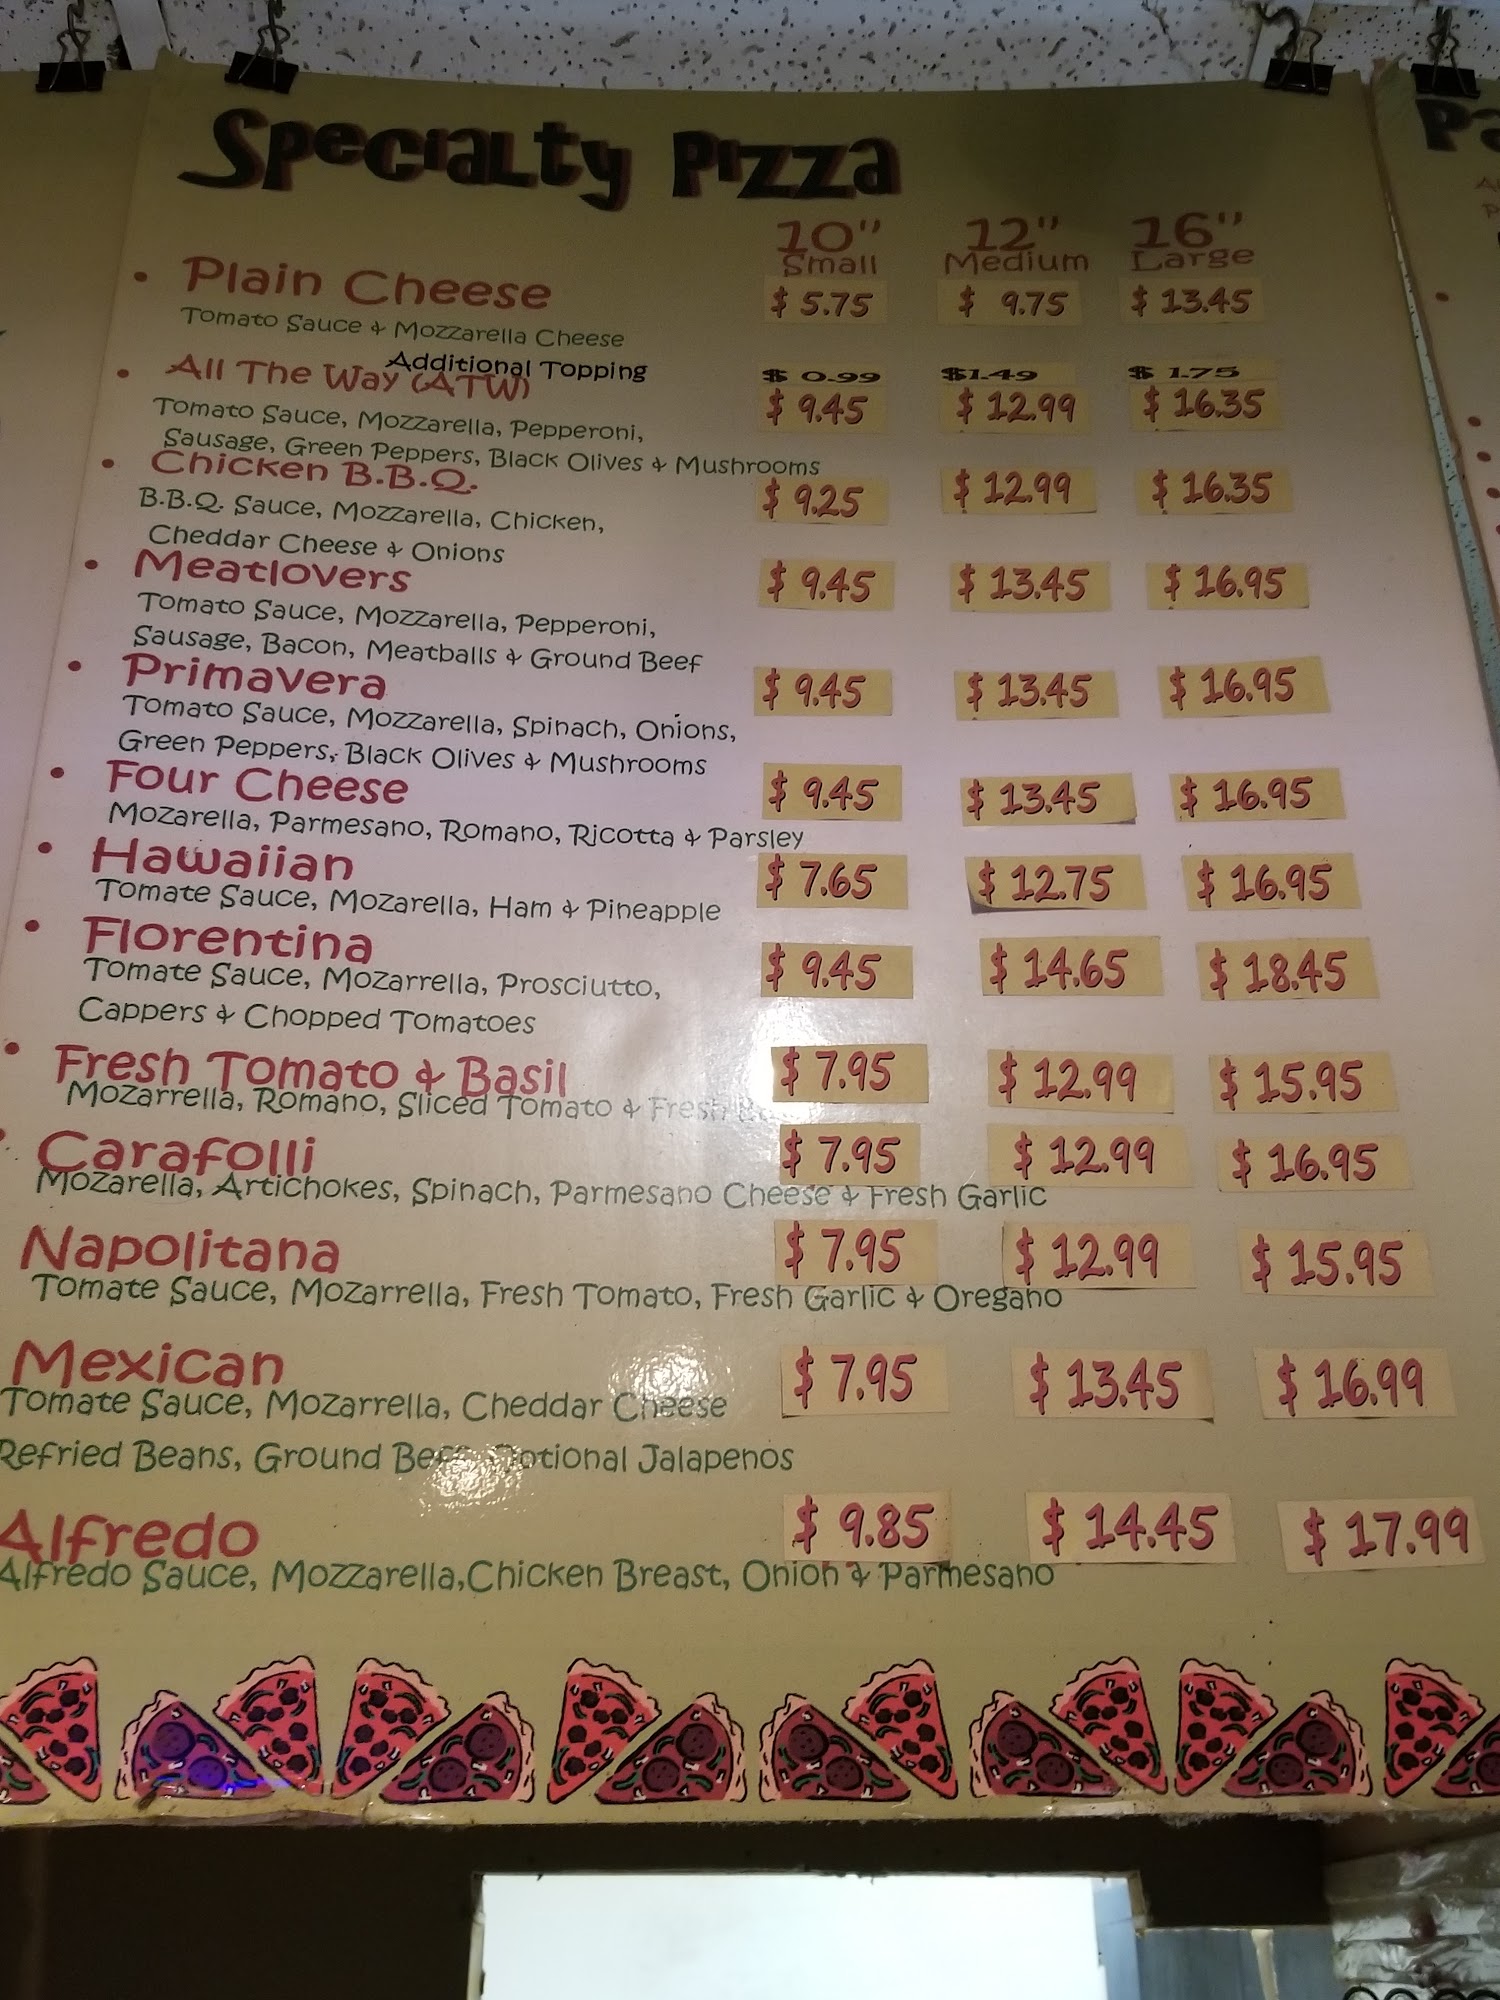 Specialty Pizza
10" 12" 16"
Small Medium Large
• Plain Cheese $ 5.75 $ 9.75 $ 13.45
Tomato Sauce & Mozzarella Cheese
Additional Topping $ 0.99 $1.49 $ 1.75
• All The Way (ATW) $ 9.45 $ 12.99 $ 16.35
Tomato Sauce, Mozzarella, Pepperoni,
Sausage, Green Peppers, Black Olives & Mushrooms
• Chicken B.B.Q. $ 9.25 $ 12.99 $ 16.35
B.B.Q. Sauce, Mozzarella, Chicken,
Cheddar Cheese & Onions
• Meatlovers $ 9.45 $ 13.45 $ 16.95
Tomato Sauce, Mozzarella, Pepperoni,
Sausage, Bacon, Meatballs & Ground Beef
• Primavera $ 9.45 $ 13.45 $ 16.95
Tomato Sauce, Mozzarella, Spinach, Onions,
Green Peppers, Black Olives & Mushrooms
• Four Cheese $ 9.45 $ 13.45 $ 16.95
Mozarella, Parmesano, Romano, Ricotta & Parsley
• Hawaiian $ 7.65 $ 12.75 $ 16.95
Tomate Sauce, Mozarella, Ham & Pineapple
• Florentina $ 9.45 $ 14.65 $ 18.45
Tomate Sauce, Mozarrella, Prosciutto,
Cappers & Chopped Tomatoes
• Fresh Tomato & Basil $ 7.95 $ 12.99 $ 15.95
Mozarrella, Romano, Sliced Tomato & Fresh
• Carafolli $ 7.95 $ 12.99 $ 16.95
Mozarella, Artichokes, Spinach, Parmesano Cheese & Fresh Garlic
Napolitana $ 7.95 $ 12.99 $ 15.95
Tomate Sauce, Mozarrella, Fresh Tomato, Fresh Garlic & Oregano
Mexican $ 7.95 $ 13.45 $ 16.99
Tomate Sauce, Mozarrella, Cheddar Cheese
Refried Beans, Ground Beef, Optional Jalapenos
Alfredo $ 9.85 $ 14.45 $ 17.99
Alfredo Sauce, Mozzarella,Chicken Breast, Onion & Parmesano